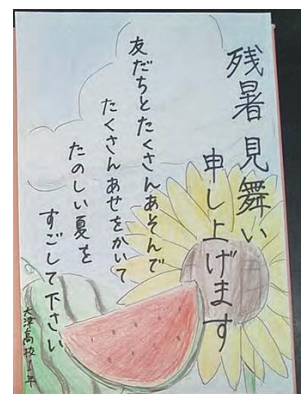 残暑見舞い
申し上げます
友だちとたくさんあそんで
たくさんあせをかいて
たのしい夏を
すごして下さい
大津高校1年